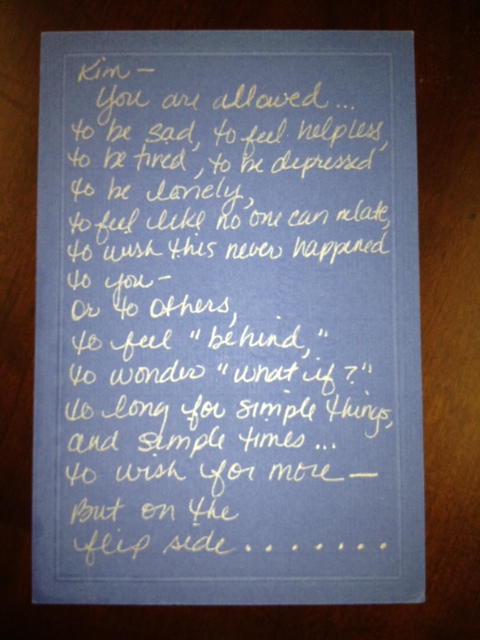 Kim –
You are allowed...
to be sad, to feel helpless,
to be tired, to be depressed
to be lonely,
to feel like no one can relate,
to wish this never happened
to you –
Or to others,
to feel "behind,"
to wonder "what if?"
to long for simple things,
and simple times...
to wish for more —
But on the
flip side........